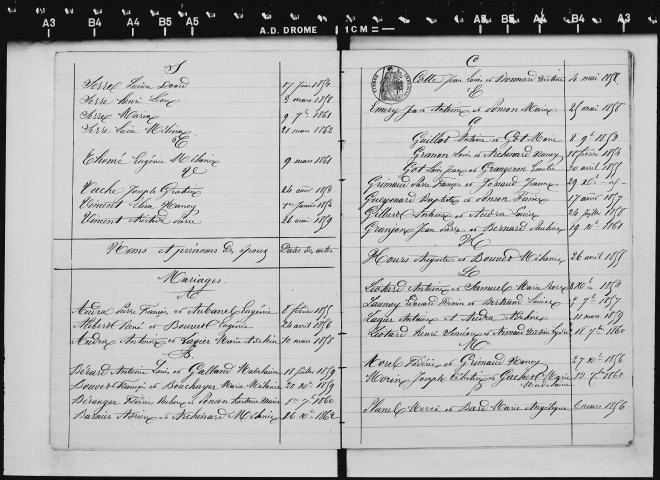 A3 B4 A4 B5 A5 A.D. DROME 1CM A5 B5 A4 B4 A3
S
Serre Lucien David 17 juin 1854
Serre Henri Léon 9 mars 1858
Serre Maria 9 7bre 1861
Serre Lucie Mélina 21 mars 1862
T
Thomé Eugénie Mélanie 9 mars 1861
V
Vache Joseph Gratien 24 avril 1853
Vincent Elisa Nancy 1er janvier 1854
Vincent Aristide Pierre 26 mai 1859
Noms et prénoms des époux Dates des actes
Mariages
A
Audra Pierre François et Aubanel Eugénie 8 février 1855
Alibert René et Bourret Eugénie 24 avril 1856
Audra Antoine et Lagier Marie 10 mars 1858
B
Bérard Antoine Louis et Galland Madelaine 18 juillet 1859
Bouvet François et Marie Mélanie 20 Xbre 1859
Béranger et Ponson Marie 1er 7bre 1860
Barnier Adrien et Archinard Mélanie 16 Xbre 1862
C
Colle Jean Louis et Bonnard 4 mai 1858
E
Emery Jean Antoine et Ponson Marie 25 mai 1858
G
Gaillot Antoine et Got Marie 8 9bre 1853
Granon Louis et Archinard Nancy 18 février 1854
Got Louis Jean et Grangeron 20 avril 1855
Grimaud Pierre François et Jeanne 29 Xbre
Baptiste et Ponson Fanie 17 août 1857
Antoine et Audra Louise 24 juillet 1858
Granjon Jean Pierre et Bernard Pauline 19 Xbre 1861
H
Hours Auguste et Bouvet Mélanie 26 avril 1855
L
Liotard Antoine et Samuel Marie Rose 8 Xbre 1853
Launoy Edouard Firmin et Bertrand Louise 7 7bre 1857
Lagier Antoine et Audra 11 mars 1859
Liotard Henri Siméon et 18 7bre 1860
M
Morel Frédéric et Grimaud Nancy 27 Xbre 1856
Morin Joseph Célestin et Marie Madelaine 13 7bre 1860
P
Planel et Bard Marie Angélique 6 mars 1856